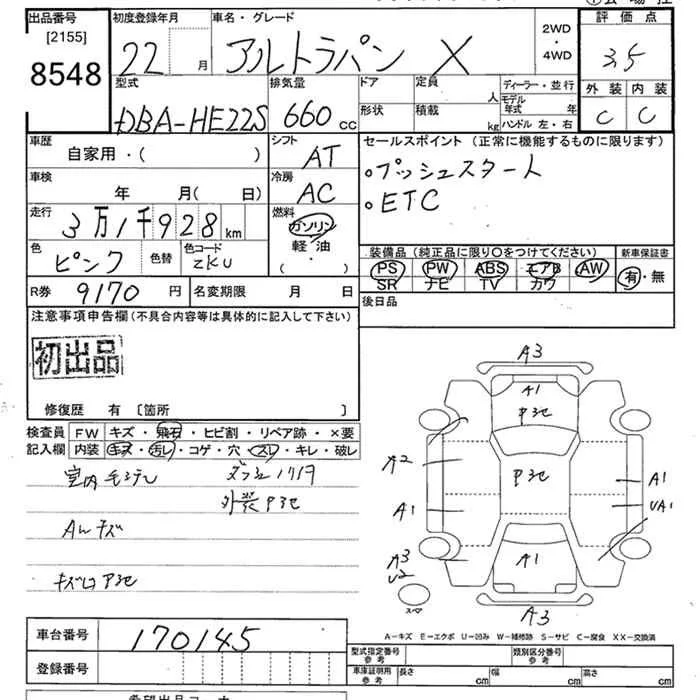 出品番号
[2155]
8548
初度登録年月
22 月
車名・グレード
アルトラパン X
2WD
・
4WD
評価点
3.5
外装 内装
C C
型式
DBA-HE22S
排気量
660 cc
ドア
形状
定員
人
積載
kg
ディーラー・並行
モデル
年式 年
ハンドル 左・右
車歴
自家用・( )
シフト
AT
セールスポイント (正常に機能するものに限ります)
・プッシュスタート
・ETC
車検
年 月(日)
冷房
AC
走行
3万1千928 km
燃料
ガソリン
軽油・
( )
色
ピンク
色替
色コード
ZKU
装備品 (純正品に限り〇をつけてください)
PS PW ABS エアB AW
SR ナビ TV カワ
新車保証書
有・無
R券 9170 円
名変期限 月 日
後日品
注意事項申告欄(不具合内容等は具体的に記入して下さい)
初出品
修復歴 有 [箇所 ]
検査員
記入欄
FW キズ・飛石・ヒビ割・リペア跡・×要
内装 キズ・汚レ・コゲ・穴・スレ・キレ・破レ
A3
A1
A2
A1
A1
UA1
A3
U2
A1
スペア
A3
A-キズ E-エクボ U-凹み W-補修跡 S-サビ C-腐食 XX-交換済
車台番号 170145
登録番号
型式指定番号
参考
類別区分番号
参考
車庫証明用
参考
長さ cm
幅 cm
高さ cm